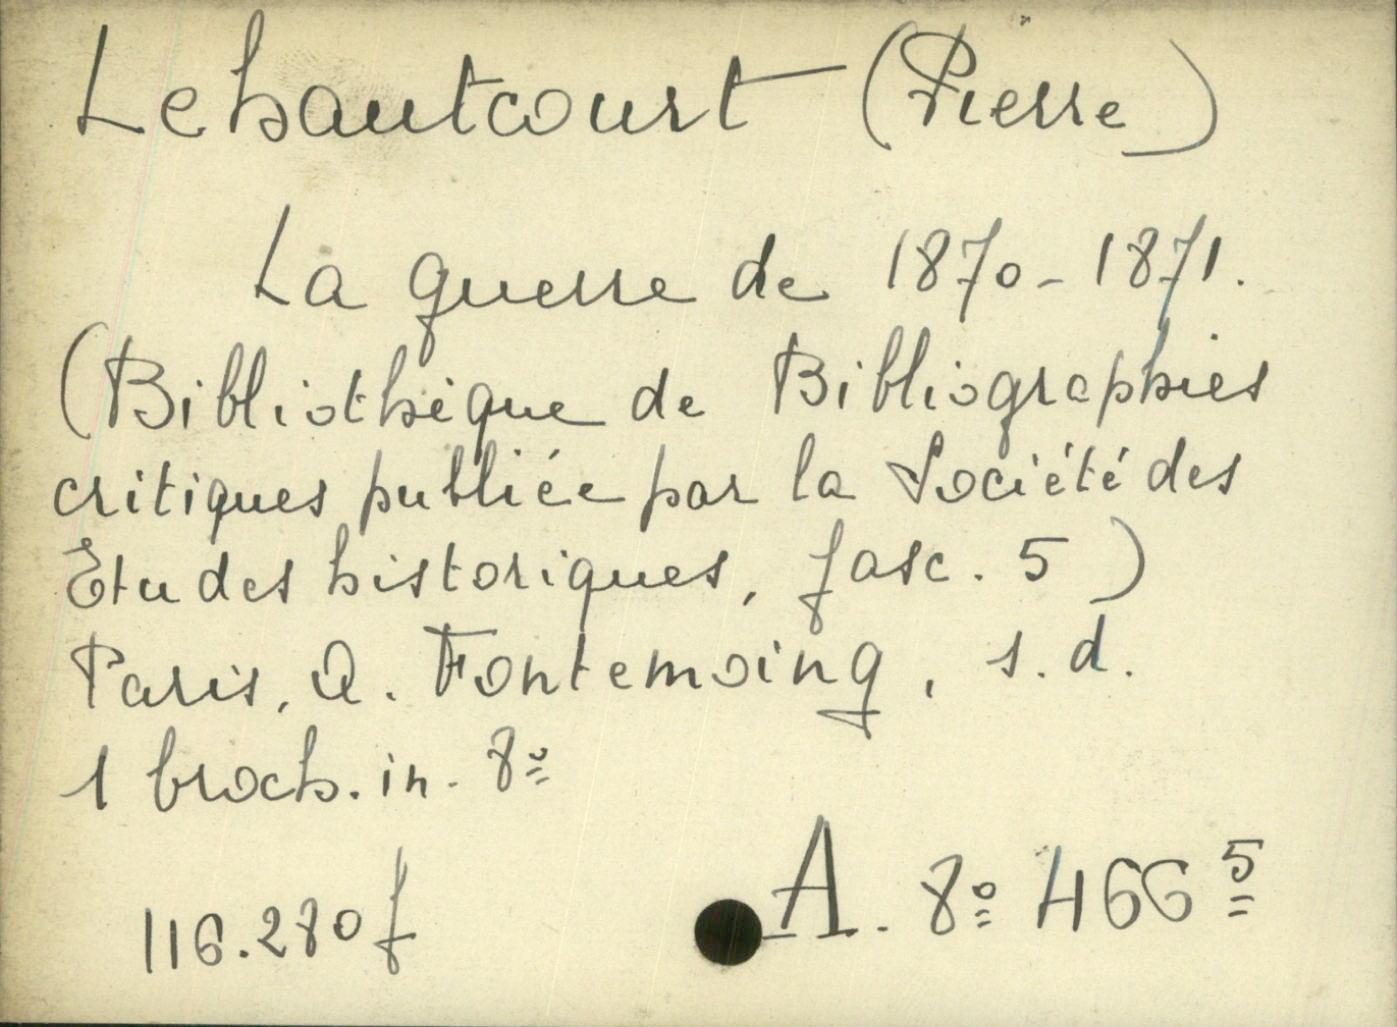 Lehautcourt (Pierre)
La guerre de 1870-1871.
(Bibliothèque de Bibliographies
critiques publiée par la Société des
Etudes historiques, fasc. 5)
Paris, A. Fontemoing, s.d.
1 broch. in-8º
116.280 f
A. 8º 466 5